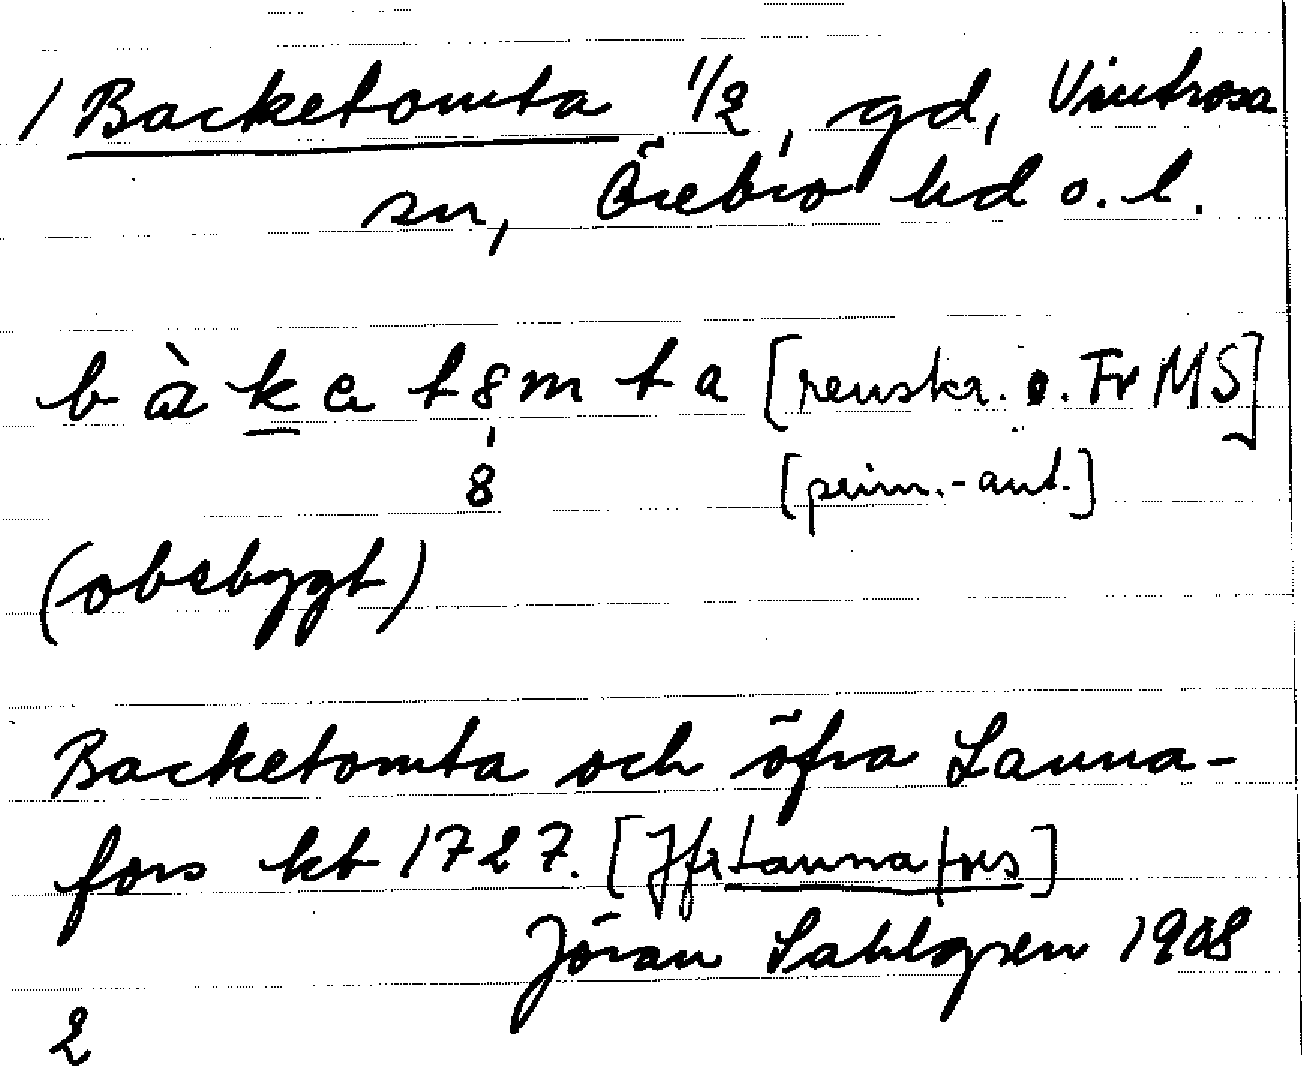 1 Backetomta 1/2, gd, Vintrosa
sn, Örebro hd o. l.
bàketȣmta [renskr. o. Fr MS]
ȣ [prim.-ant.]
(obebygt)
Backetomta och öfra Lanna-
fors kb 1727. [Jfr Lannafors]
Jöran Sahlgren 1908
2